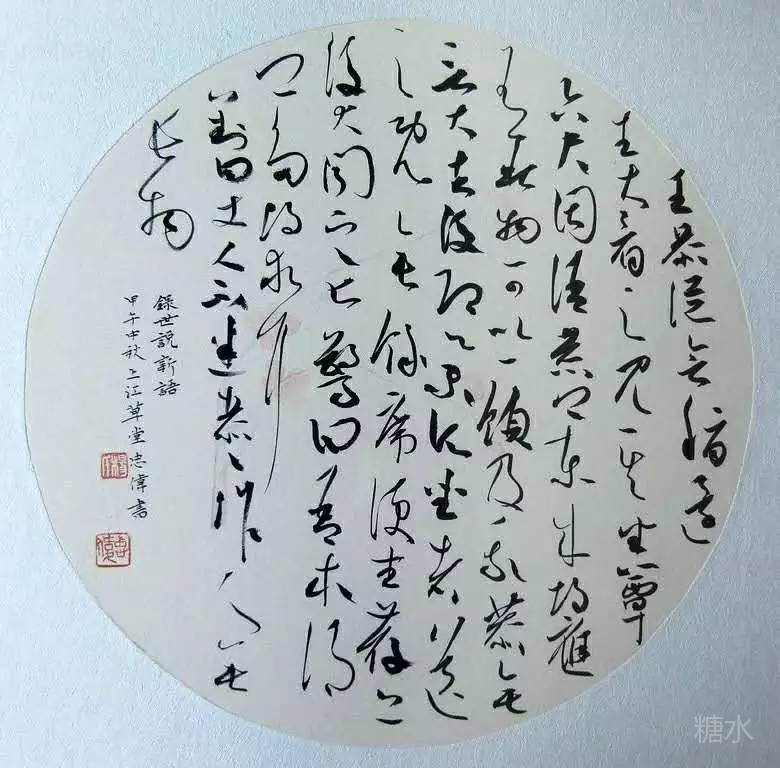 王恭從會稽還
王大看之見其坐簟
六尺因語恭卿東來故應
有此物可以一領及我恭無
言大去後即舉所坐者送
之既無餘席便坐薦上
後大聞之甚驚曰吾本謂
卿多故求耳
對曰丈人不悉恭〻作人無
長物
錄世說新語
甲午中秋上江草堂志偉書
糖水